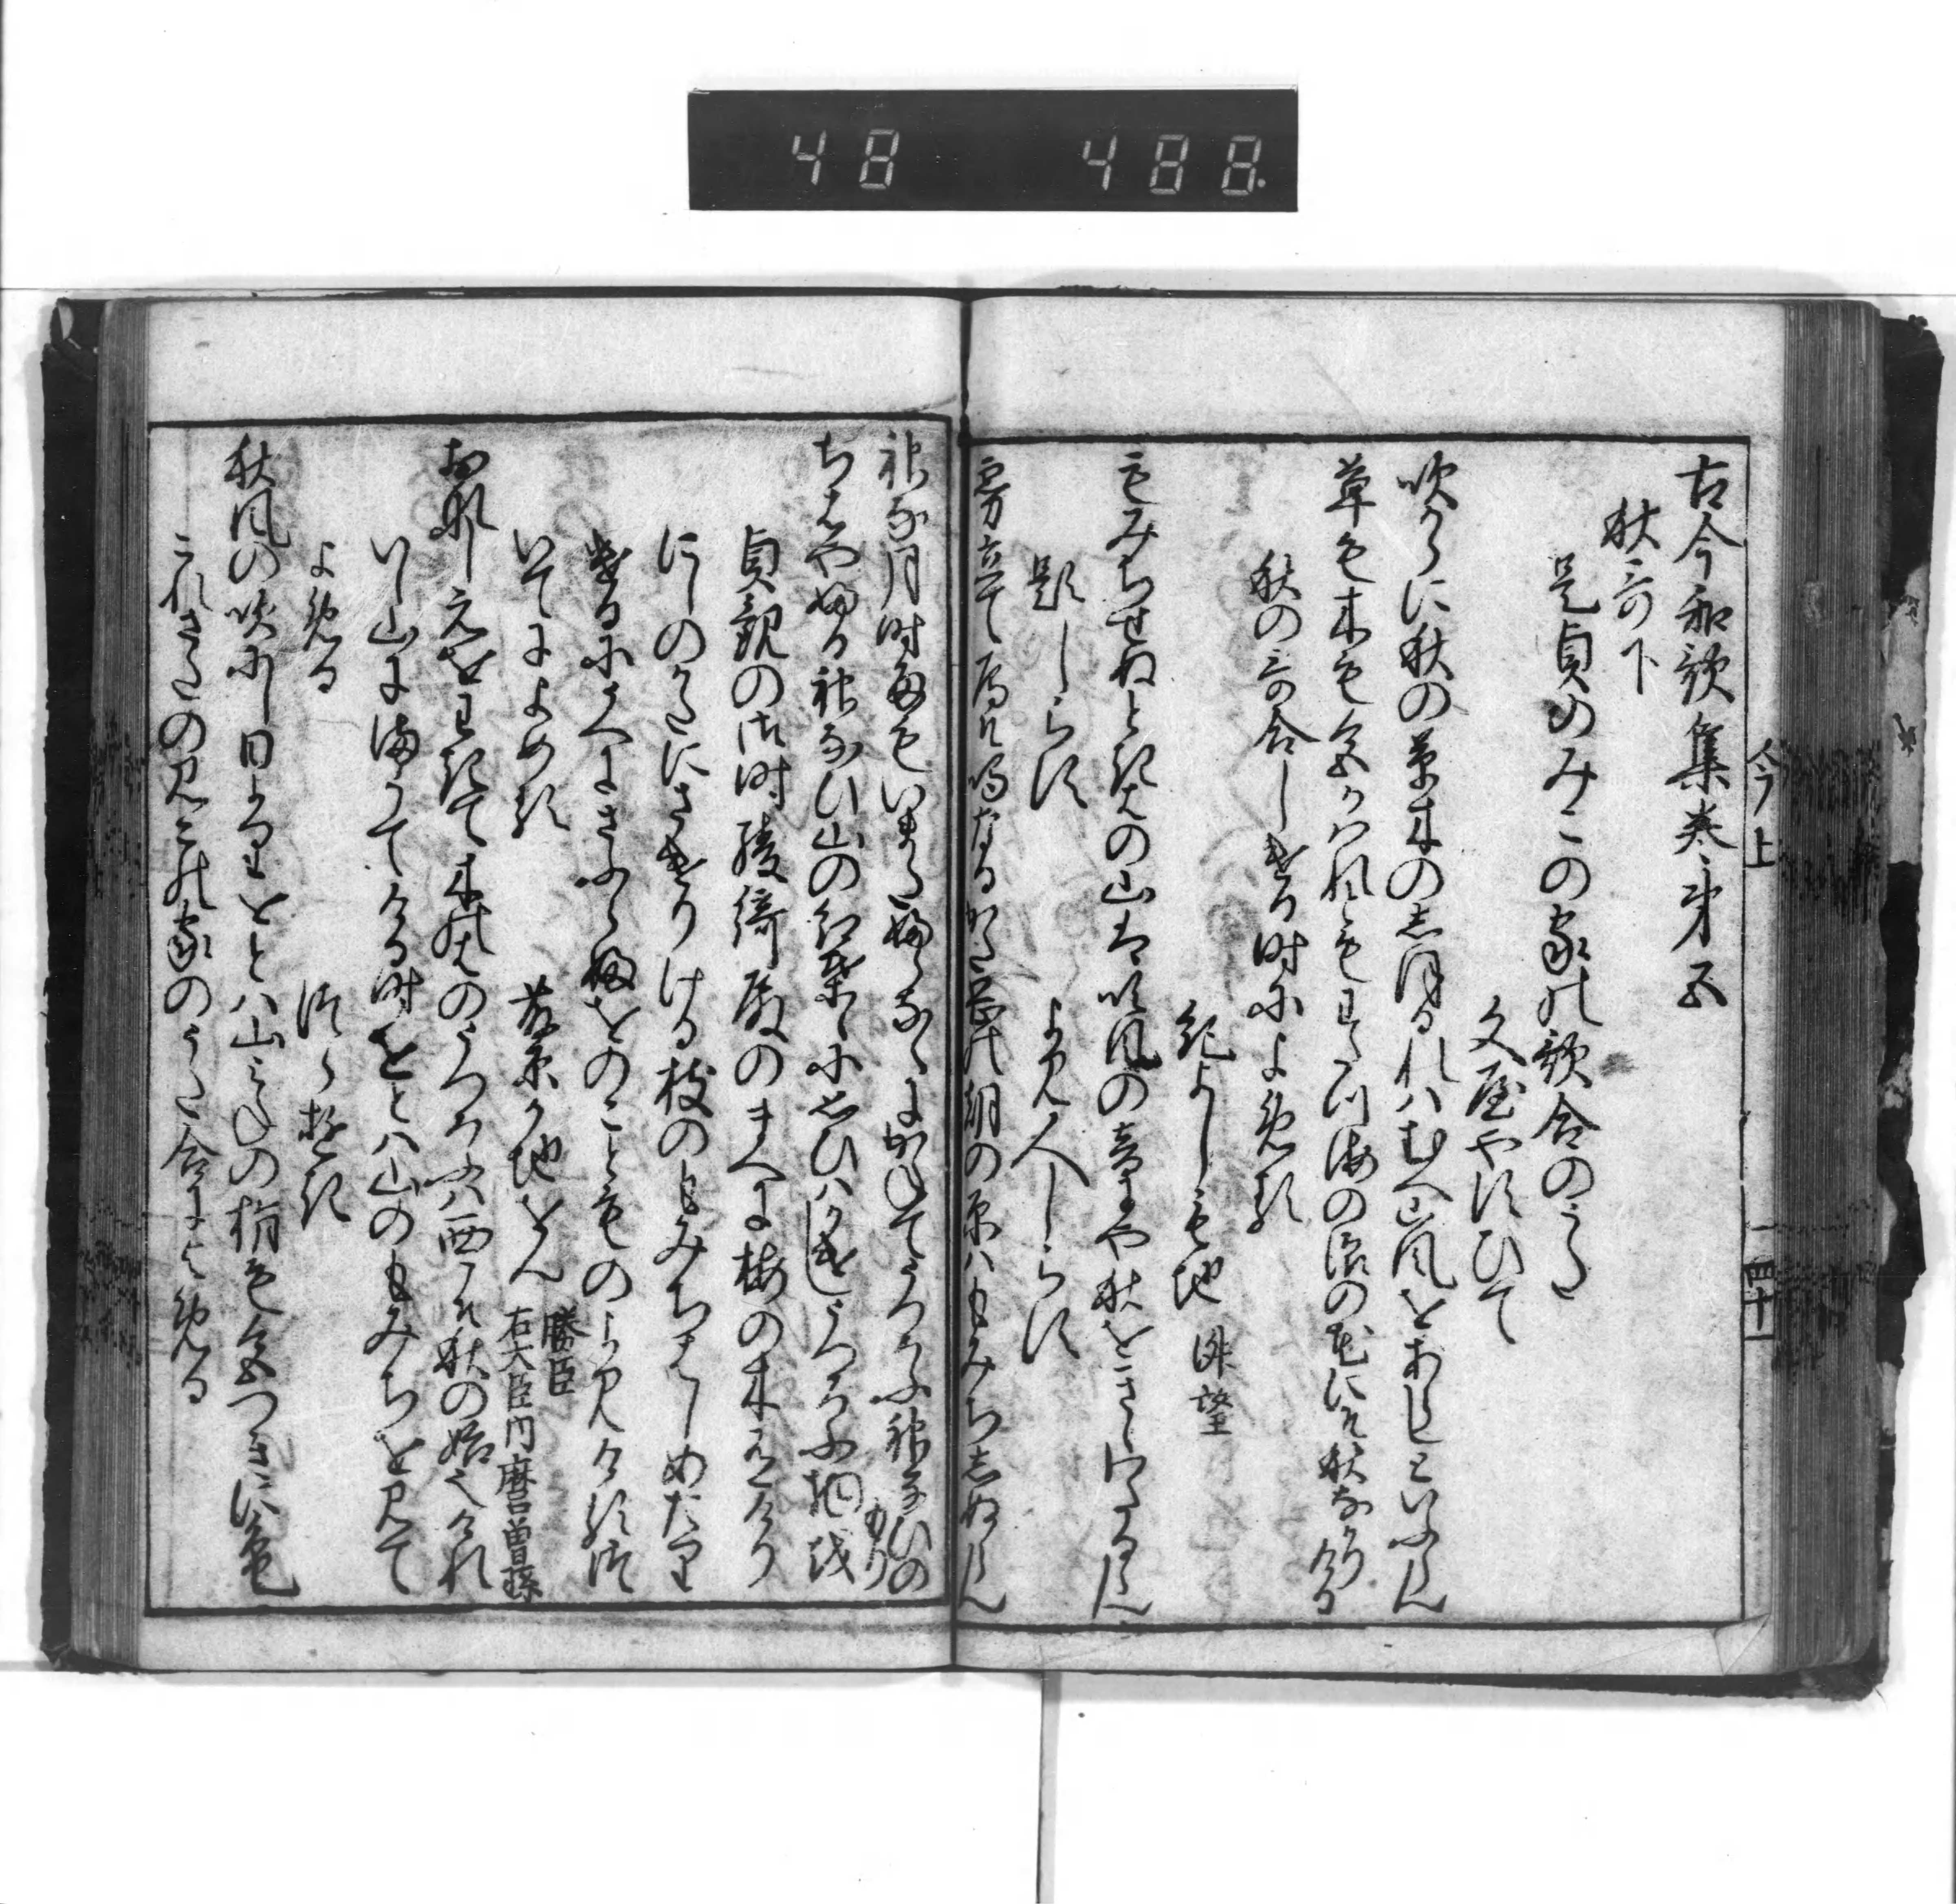 48 488
今上 四十一
古今和歌集巻第五
秋哥下
是貞のみこの家の歌合のうた
文屋やすひて
吹からに秋の草木のしほるれはむへ山風をあらしといふらん
草も木も色かはれともわたつ海の浪の花にそ秋なかりける
秋の哥合しける時によめる
紀よしもち 淑望
もみちせぬときはの山は吹風の音にや秋をきゝわたるらん
題しらす
よみ人しらす
霧立て鳫そ鳴なるかた岡の朝の原はもみちしぬらん
神な月時雨もいまたふらなくにかねてうつろふ神なひのもり
ちはやふる神なひ山の紅葉々に思ひはかけしうつろふ物を
貞観の御時綾綺殿のまへに梅の木有けり
にしのかたにさせりける枝のもみちはしめたり
けるにうへにさふらふをのこともの
いてによめる
藤原かちをん 勝臣
右大臣内麿曽孫
おなしえをわきて木のはのうつろふは西こそ秋の始也けれ
いし山にまうてける時をとは山のもみちを見て
よめる
つらゆき
秋風の吹にし日よりをとは山みねの梢も色つきにけり
これさたのみこの家のうた合によめる